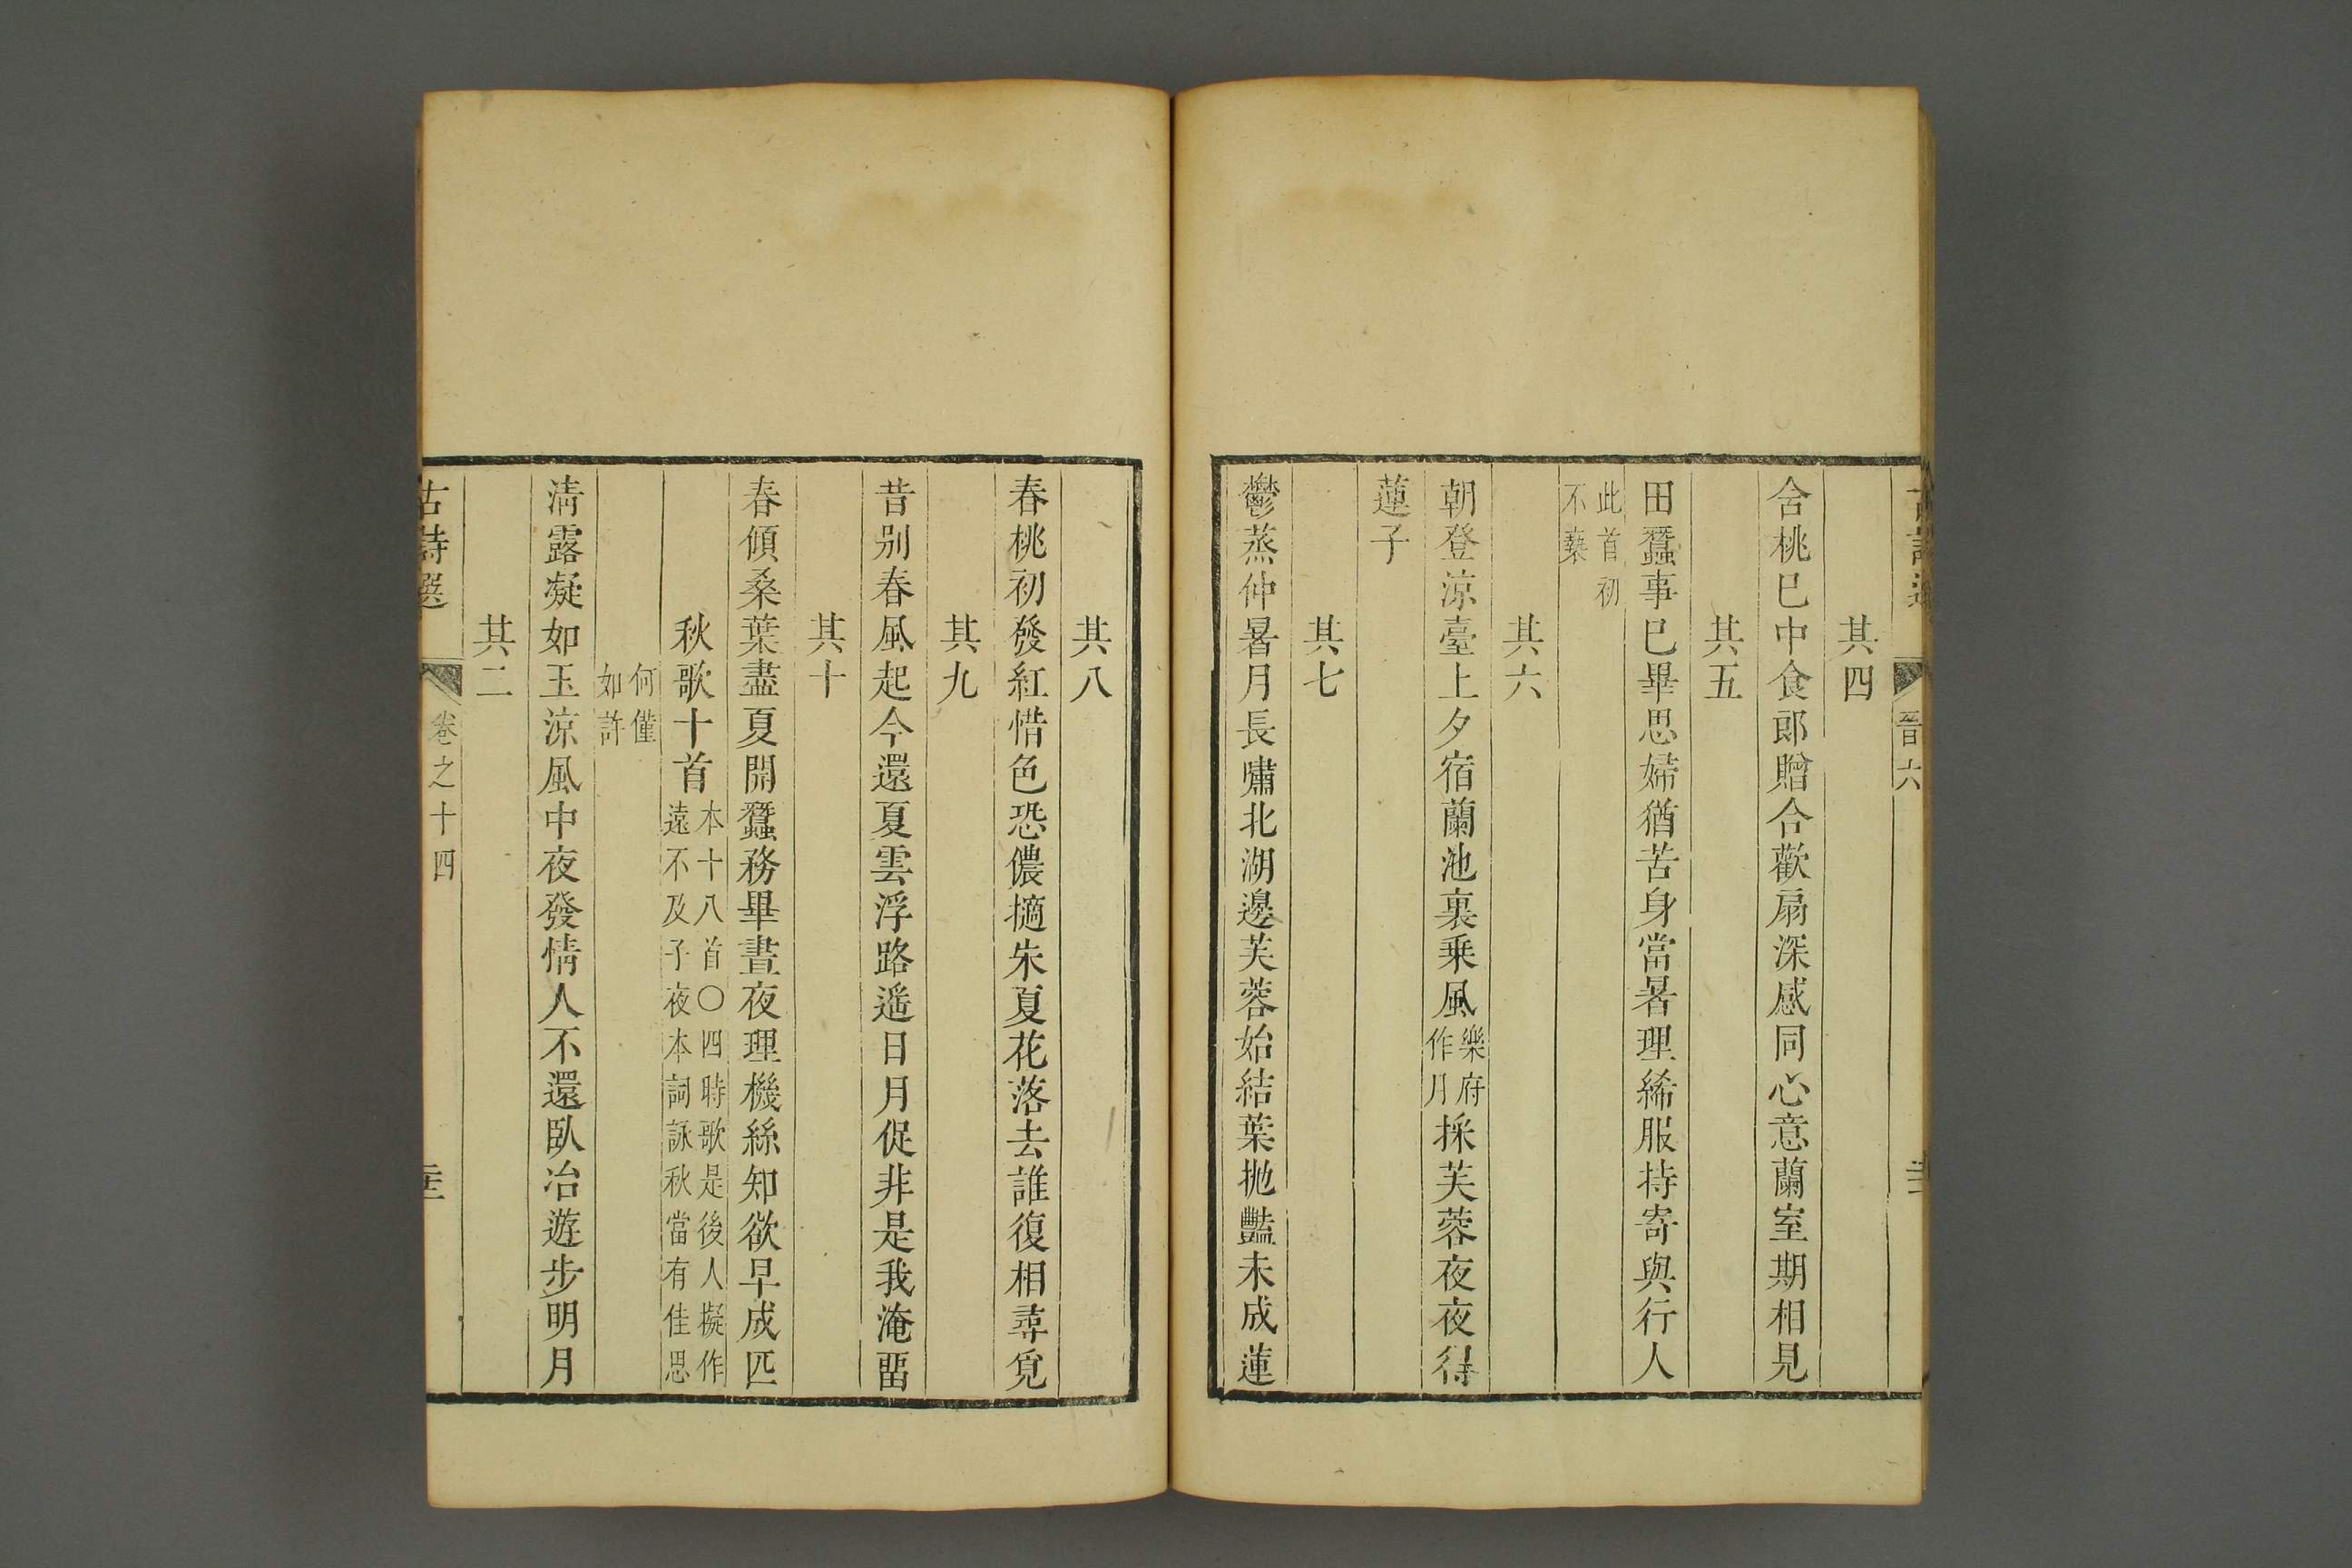 晉六
其四
含桃巳中食郎贈合歡扇深感同心意蘭室期相見
其五
田蠶事巳畢思婦猶苦身當暑理絺服持寄與行人
此首初
不褻
其六
朝登涼臺上夕宿蘭池裏乗風樂府作月採芙蓉夜夜得
蓮子
其七
鬱蒸仲暑月長嘯北湖邊芙蓉始結葉抛豔未成蓮
其八
春桃初發紅惜色恐儂擿朱夏花落去誰復相尋覓
其九
昔別春風起今還夏雲浮路遥日月促非是我淹畱
其十
春傾桑葉盡夏開蠶務畢晝夜理機絲知欲早成匹
秋歌十首本十八首〇四時歌是後人擬作
遠不及子夜本詞詠秋當有佳思
何僅
如許
清露凝如玉涼風中夜發情人不還臥冶遊步明月
其二
古詩選 卷之十四